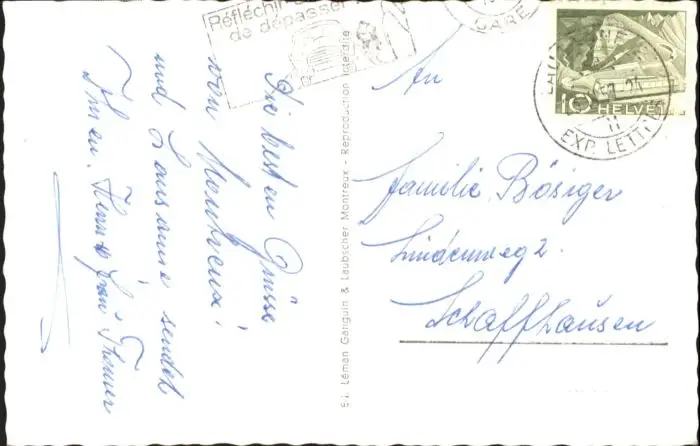 Réfléchir
de dépasser
GARE
LAUSANNE
EXP. LETTR
10 HELVETIA
Die besten Grüsse
von Montreux
und Lausanne sendet
Ihnen, Herr & Frau Thenner
E.i. Léman Ganguin & Laubscher Montreux - Reproduction interdite
An
Familie Bösiger
Lindenweg 2.
Schaffhausen